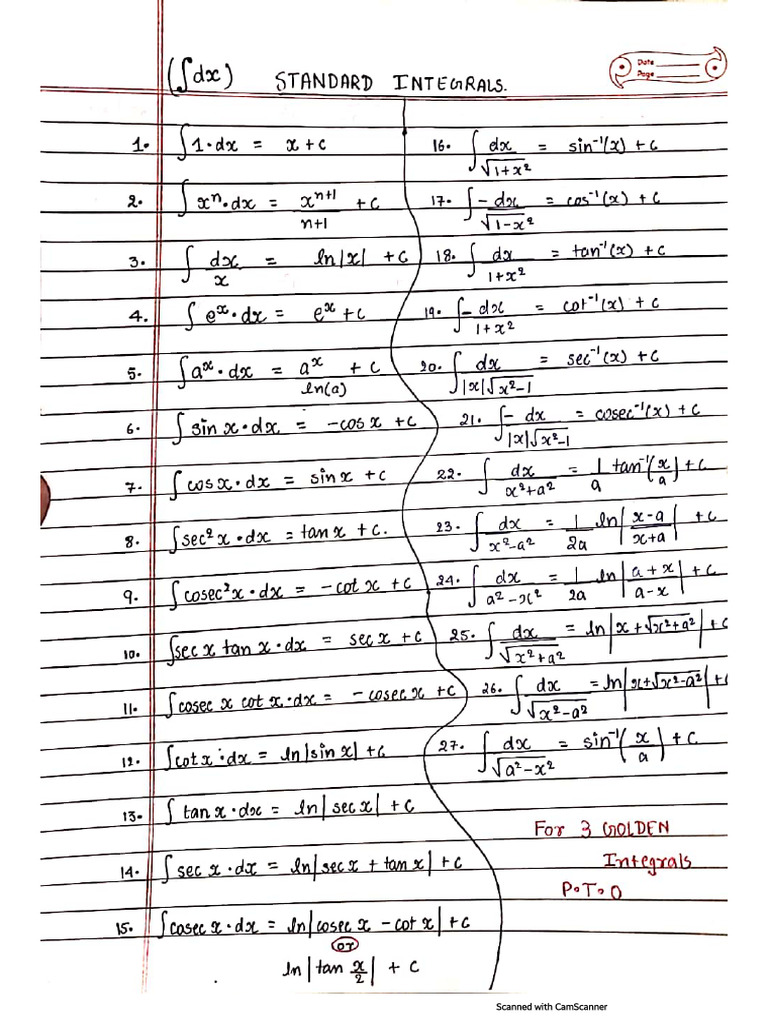 (∫dx) STANDARD INTEGRALS.
Date
Page
1. ∫1·dx = x + c
2. ∫xⁿ·dx = xⁿ⁺¹/n+1 + c
3. ∫dx/x = ln|x| + c
4. ∫eˣ·dx = eˣ + c
5. ∫aˣ·dx = aˣ/ln(a) + c
6. ∫sin x·dx = -cos x + c
7. ∫cos x·dx = sin x + c
8. ∫sec²x·dx = tan x + c.
9. ∫cosec²x·dx = -cot x + c
10. ∫sec x tan x·dx = sec x + c
11. ∫cosec x cot x·dx = -cosec x + c
12. ∫cot x·dx = ln|sin x| + c
13. ∫tan x·dx = ln|sec x| + c
14. ∫sec x·dx = ln|sec x + tan x| + c
15. ∫cosec x·dx = ln|cosec x - cot x| + c
or
ln|tan x/2| + c
16. ∫dx/√1+x² = sin⁻¹(x) + c
17. ∫-dx/√1-x² = cos⁻¹(x) + c
18. ∫dx/1+x² = tan⁻¹(x) + c
19. ∫-dx/1+x² = cot⁻¹(x) + c
20. ∫dx/|x|√x²-1 = sec⁻¹(x) + c
21. ∫-dx/|x|√x²-1 = cosec⁻¹(x) + c
22. ∫dx/x²+a² = 1/a tan⁻¹(x/a) + c
23. ∫dx/x²-a² = 1/2a ln|x-a/x+a| + c
24. ∫dx/a²-x² = 1/2a ln|a+x/a-x| + c
25. ∫dx/√x²+a² = ln|x+√x²+a²| + c
26. ∫dx/√x²-a² = ln|x+√x²-a²| + c
27. ∫dx/√a²-x² = sin⁻¹(x/a) + c
For 3 GOLDEN
Integrals
P.T.O
Scanned with CamScanner